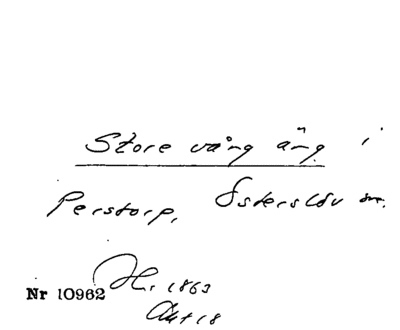 Store vång äng i
Perstorp, Österslöv sn.
H. 1863
Nr 10962
Akt 18